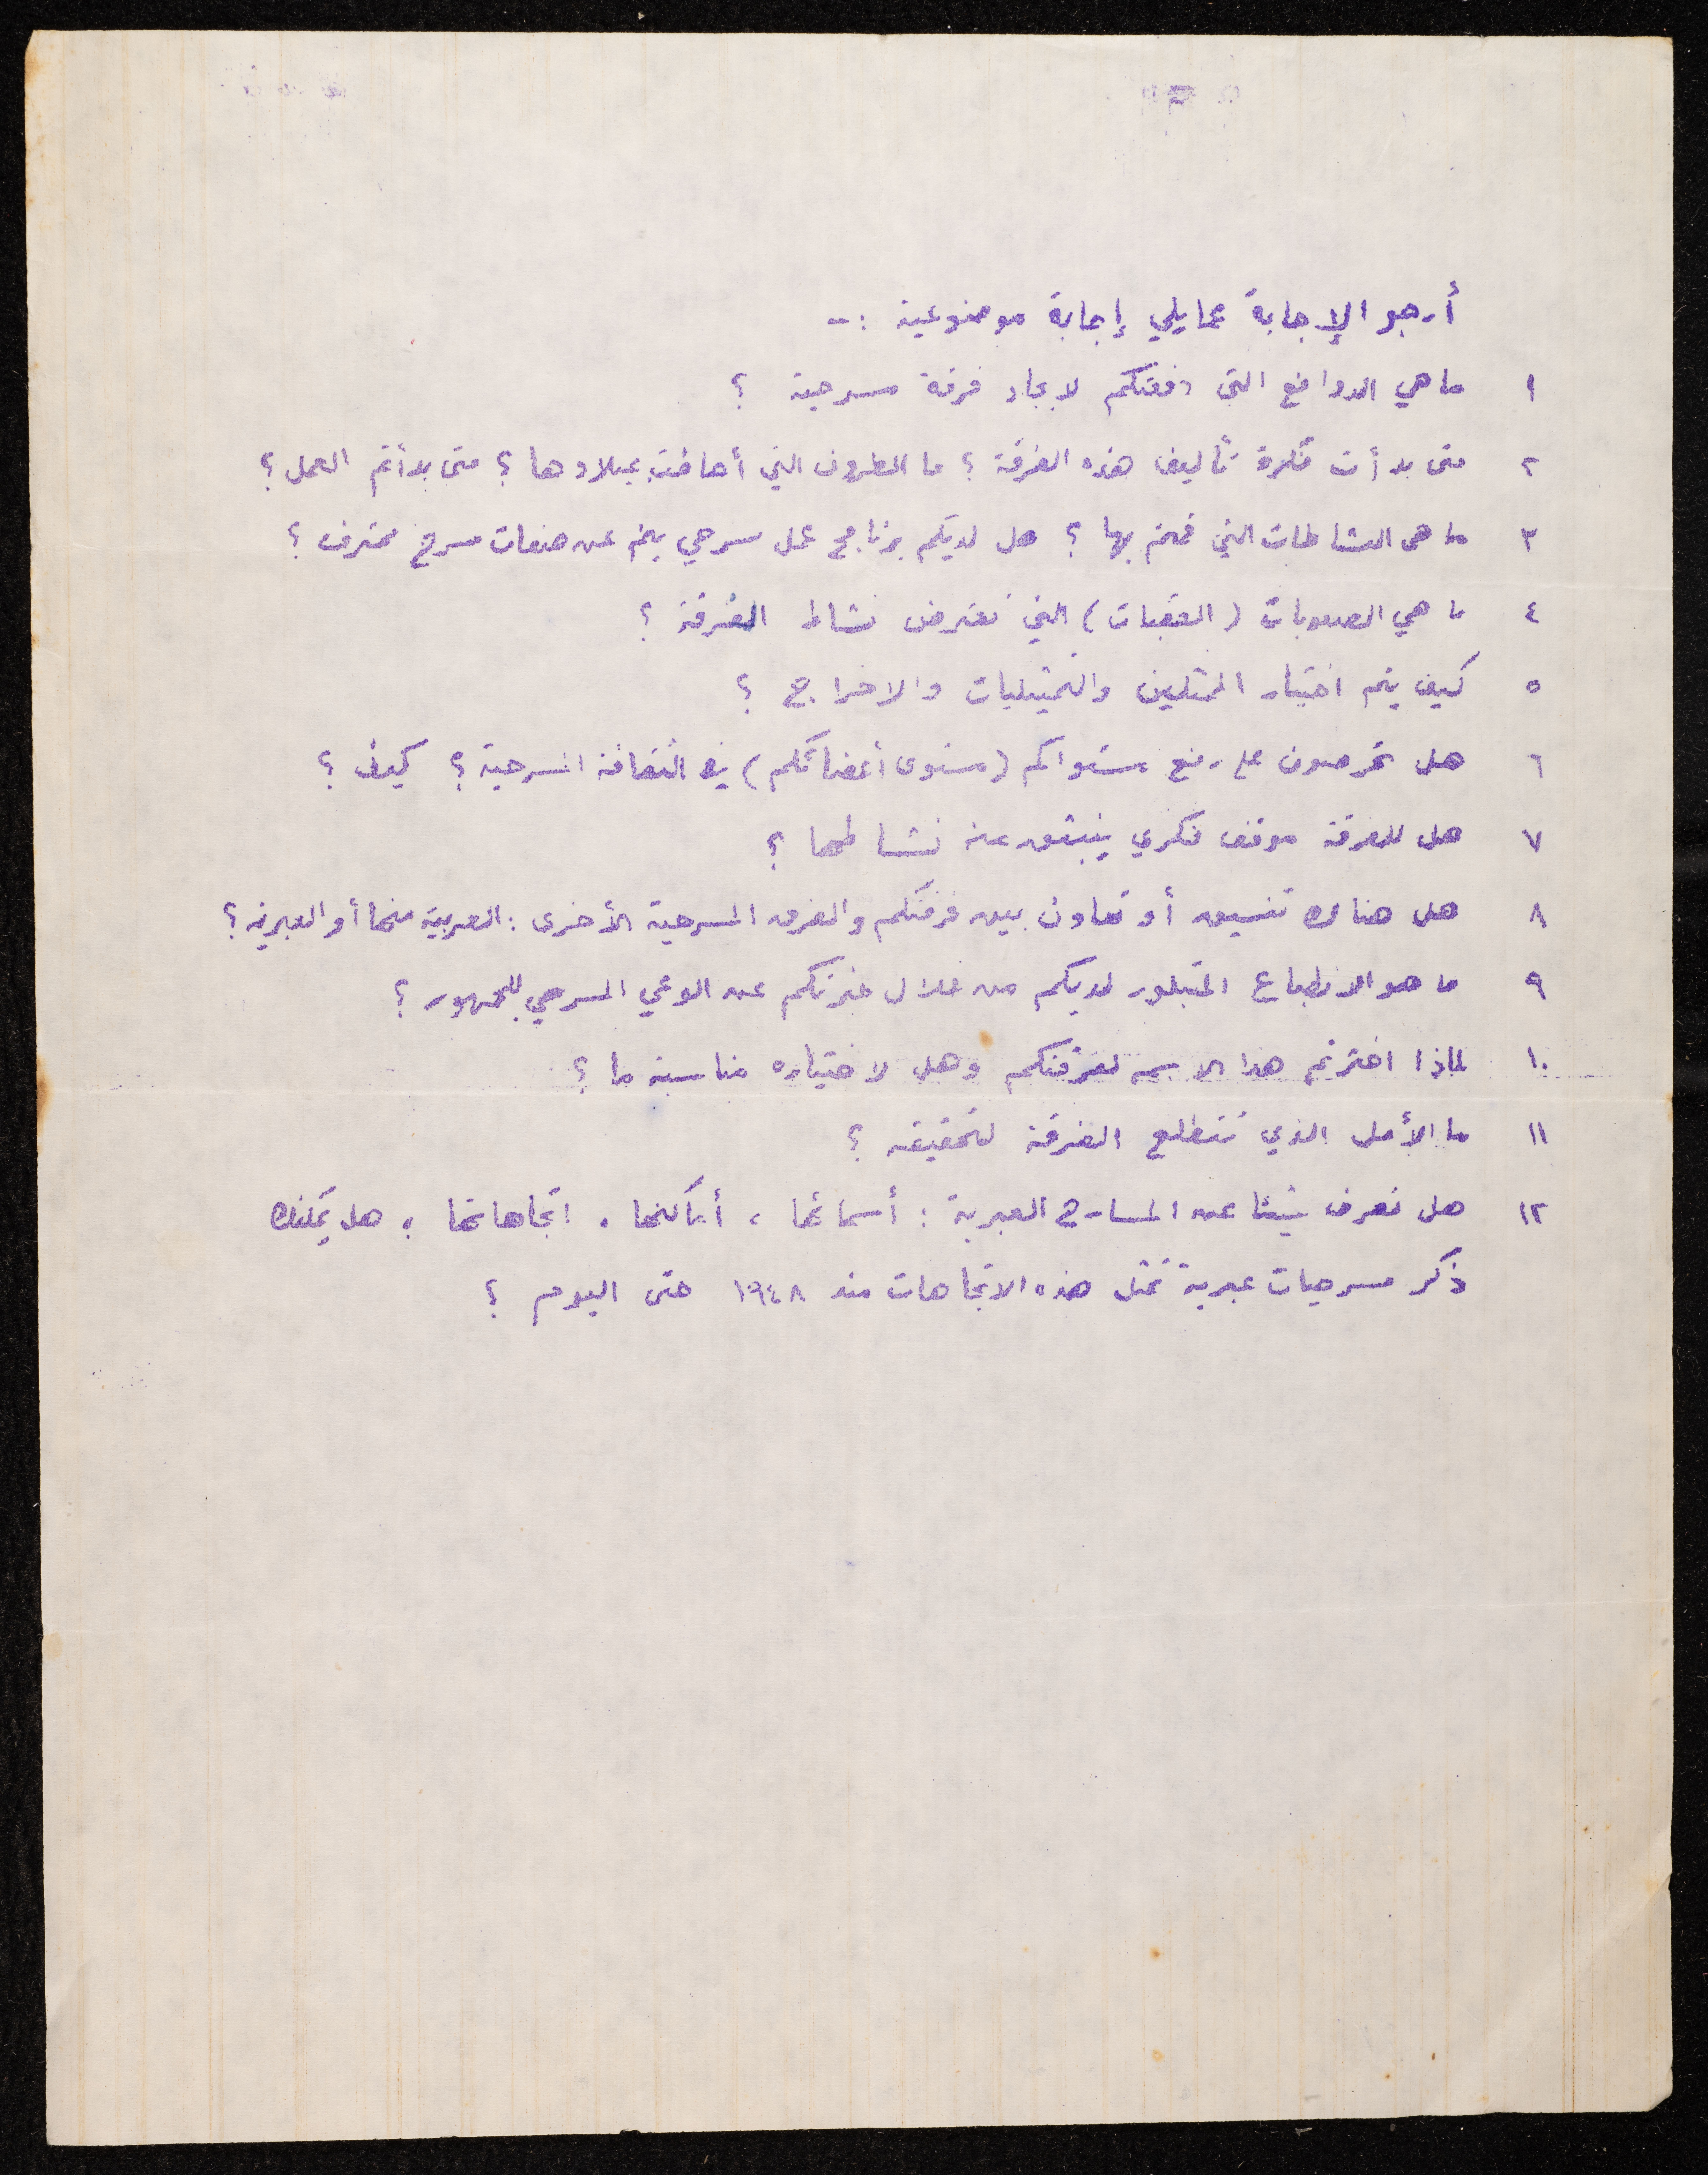 أرجو الإجابة عما يلي إجابة موضوعية :-
١ ما هي الدوافع التي دفعتكم لايجاد فرقة مسرحية ؟
٢ متى بدأت فكرة تأليف هذه الفرقة ؟ ما الظروف التي أحاطت بميلادها ؟ متى بدأتم العمل ؟
٣ ما هي النشاطات التي قمتم بها ؟ هل لديكم برنامج عمل مسرحي ينم عن صفات مسرح محترف ؟
٤ ما هي الصعوبات ( العقبات ) التي تعترض نشاط الفرقة ؟
٥ كيف يتم اختيار الممثلين والتمثيليات والاخراج ؟
٦ هل تحرصون على رفع مستواكم ( مستوى أعضائكم ) في الثقافة المسرحية ؟ كيف ؟
٧ هل للفرقة موقف فكري ينبثق عنه نشاطها ؟
٨ هل هناك تنسيق أو تعاون بين فرقتكم والفرق المسرحية الأخرى : العربية منها أو العبرية ؟
٩ ما هو الانطباع المتبلور لديكم من خلال خبرتكم عن الوعي المسرحي للجمهور ؟
١٠ لماذا اخترتم هذا الاسم لفرقتكم وهل لاختياره مناسبة ما ؟
١١ ما الأمل الذي تتطلع الفرقة لتحقيقه ؟
١٢ هل تعرف شيئا عن المسارح العبرية : أسمائها ، أماكنها ، اتجاهاتها ؟ هل يمكنك
ذكر مسرحيات عبرية تمثل هذه الاتجاهات منذ ١٩٤٨ حتى اليوم ؟